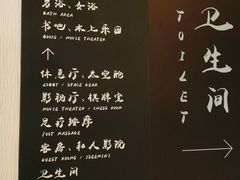 男浴、女浴
BATH AREA
书吧、水上乐园
BOOKS / MOVIE THEATER
↑
休息厅、太空舱
LOBBY / SPACE GEAR
影秘厅、棋牌室
MOVIE THEATER / CHESS ROOM
足疗按摩
FOOT MASSAGE
客房、私人影院
GUEST ROOMS /
卫生间
TOILET
卫生间